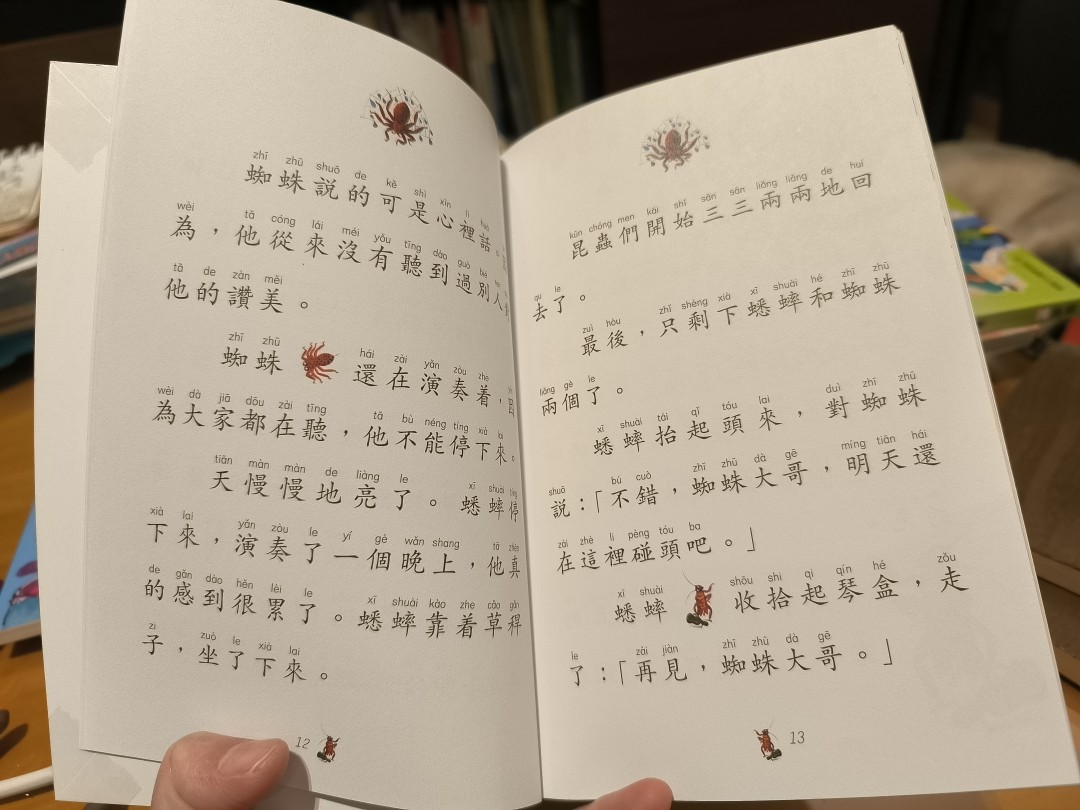 zhī zhū shuō de kě shì xīn li huà
蜘蛛說的可是心裡話。
wèi tā cóng lái méi yǒu tīng dào guò bié rén
為，他從來沒有聽到過別人
tā de zàn měi
他的讚美。
zhī zhū hái zài yǎn zòu zhe
蜘蛛還在演奏着，因
wèi dà jiā dōu zài tīng tā bù néng tíng xià lai
為大家都在聽，他不能停下來。
tiān màn màn de liàng le xī shuài tíng
天慢慢地亮了。蟋蟀停
xià lai yǎn zòu le yí gè wǎn shang tā zhēn
下來，演奏了一個晚上，他真
de gǎn dào hěn lèi le xī shuài kào zhe cǎo gǎn
的感到很累了。蟋蟀靠着草稈
zi zuò le xià lai
子，坐了下來。
12
kūn chóng men kāi shǐ sān sān liǎng liǎng de huí
昆蟲們開始三三兩兩地回
qu le
去了。
zuì hòu zhǐ shèng xià xī shuài hé zhī zhū
最後，只剩下蟋蟀和蜘蛛
liǎng gè le
兩個了。
xī shuài tái qǐ tóu lai duì zhī zhū
蟋蟀抬起頭來，對蜘蛛
shuō bú cuò zhī zhū dà gē míng tiān hái
說：「不錯，蜘蛛大哥，明天還
zài zhè li pèng tóu ba
在這裡碰頭吧。」
xī shuài shōu shi qi qín hé zǒu
蟋蟀收拾起琴盒，走
le zài jiàn zhī zhū dà gē
了：「再見，蜘蛛大哥。」
13